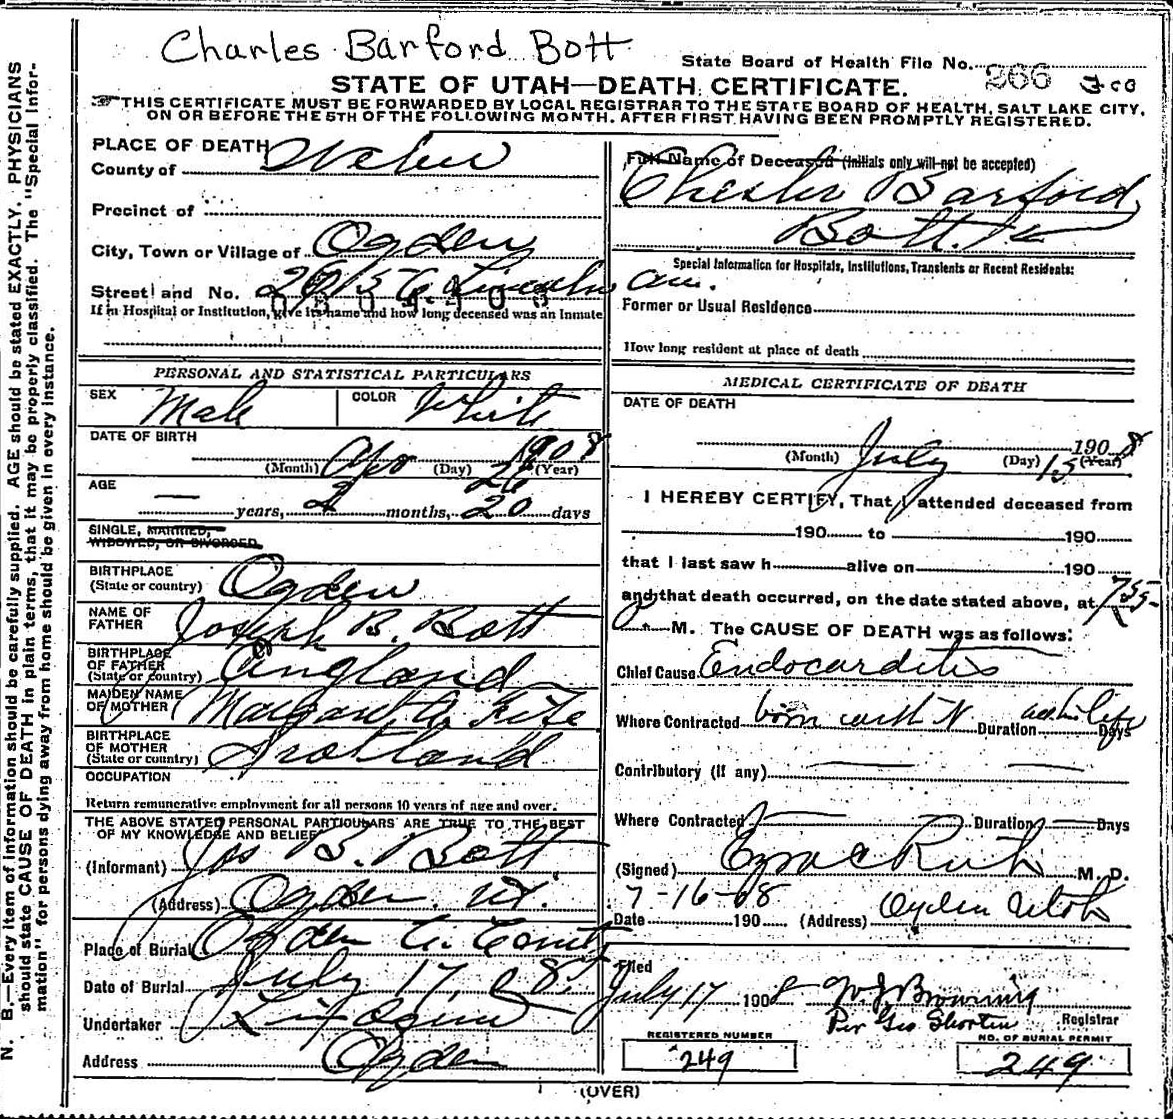 Charles Barford Bott
State Board of Health File No. 266
STATE OF UTAH—DEATH CERTIFICATE.
THIS CERTIFICATE MUST BE FORWARDED BY LOCAL REGISTRAR TO THE STATE BOARD OF HEALTH, SALT LAKE CITY,
ON OR BEFORE THE 5TH OF THE FOLLOWING MONTH, AFTER FIRST HAVING BEEN PROMPTLY REGISTERED.
N. B.—Every item of information should be carefully supplied. AGE should be stated EXACTLY. PHYSICIANS
should state CAUSE OF DEATH in plain terms, that it may be properly classified. The "Special Infor-
mation" for persons dying away from home should be given in every instance.
PLACE OF DEATH
County of Weber
Precinct of
City, Town or Village of Ogden
Street and No. Lincoln Ave.
If in Hospital or Institution, give its name and how long deceased was an Inmate
Full Name of Deceased (Initials only will not be accepted)
Chester Barford
Bott
Special Information for Hospitals, Institutions, Transients or Recent Residents:
Former or Usual Residence
How long resident at place of death
PERSONAL AND STATISTICAL PARTICULARS
SEX Male COLOR White
DATE OF BIRTH
(Month) Apr (Day) 26 1908 (Year)
AGE
— years, 2 months, 20 days
SINGLE, MARRIED,
WIDOWED, OR DIVORCED
BIRTHPLACE
(State or country) Ogden
NAME OF
FATHER Joseph B. Bott
BIRTHPLACE
OF FATHER
(State or country) England
MAIDEN NAME
OF MOTHER Margaret A.
BIRTHPLACE
OF MOTHER
(State or country) Scotland
OCCUPATION
Return remunerative employment for all persons 10 years of age and over.
THE ABOVE STATED PERSONAL PARTICULARS ARE TRUE TO THE BEST
OF MY KNOWLEDGE AND BELIEF
(Informant) Jos B. Bott
(Address) Ogden Ut.
Place of Burial Ogden C.
Date of Burial July 17, 08
Undertaker
Address Ogden
MEDICAL CERTIFICATE OF DEATH
DATE OF DEATH
(Month) July (Day) 15 1908 (Year)
I HEREBY CERTIFY, That I attended deceased from
190 to 190
that I last saw h alive on 190
and that death occurred, on the date stated above, at 735
M. The CAUSE OF DEATH was as follows:
Chief Cause Endocarditis
Where Contracted born with it Duration Days
Contributory (if any) — —
Where Contracted — Duration — Days
(Signed) M. D.
7-16-08
Date 190 (Address) Ogden Utah
Filed
July 17 1908 Browning
Per Geo Shorten Registrar
REGISTERED NUMBER
249
NO. OF BURIAL PERMIT
249
(OVER)